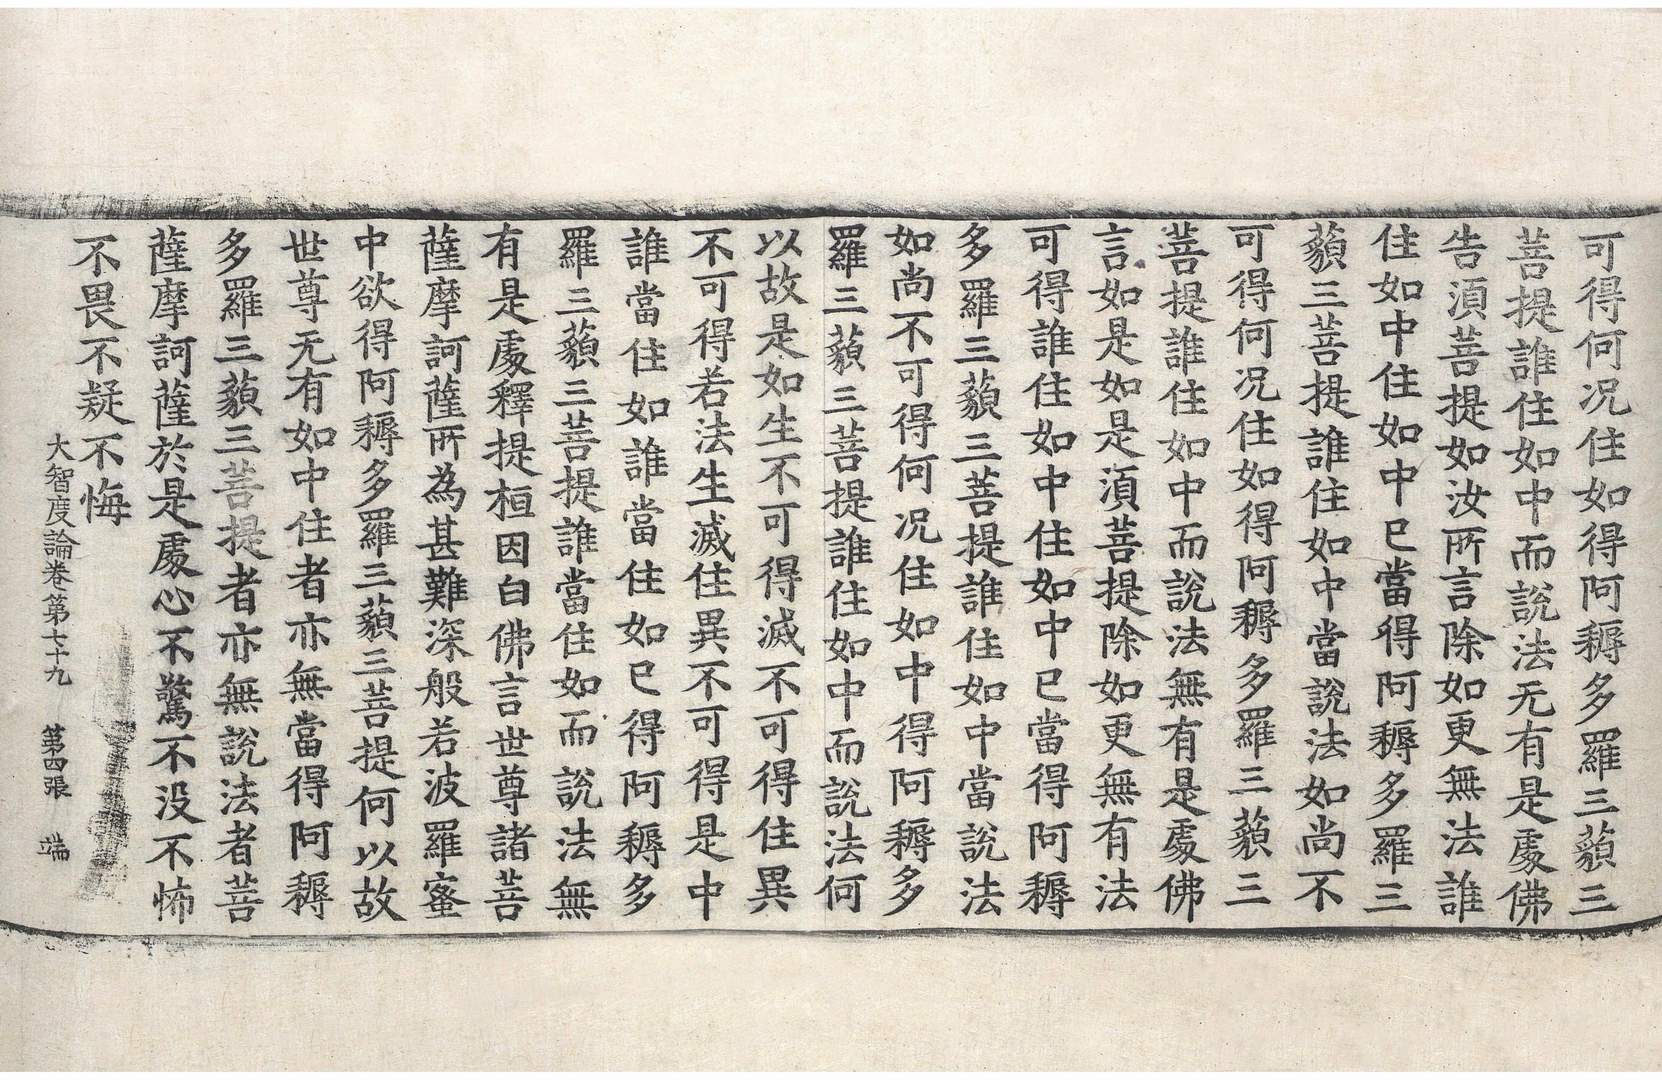 可得何况住如得阿耨多羅三藐三
菩提誰住如中而說法无有是處佛
告湏菩提如汝所言除如更無法誰
住如中住如中已當得阿耨多羅三
藐三菩提誰住如中當說法如尚不
可得何况住如得阿耨多羅三藐三
菩提誰住如中而說法無有是處佛
言如是如是湏菩提除如更無有法
可得誰住如中住如中已當得阿耨
多羅三藐三菩提誰住如中當說法
如尚不可得何况住如中得阿耨多
羅三藐三菩提誰住如中而說法何
以故是如生不可得滅不可得住異
不可得若法生滅住異不可得是中
誰當住如誰當住如已得阿耨多
羅三藐三菩提誰當住如而說法無
有是處釋提桓因白佛言世尊諸菩
薩摩訶薩所為甚難深般若波羅蜜
中欲得阿耨多羅三藐三菩提何以故
世尊无有如中住者亦無當得阿耨
多羅三藐三菩提者亦無說法者菩
薩摩訶薩於是處心不驚不没不怖
不畏不疑不悔
大智度論卷第七十九 第四張 端